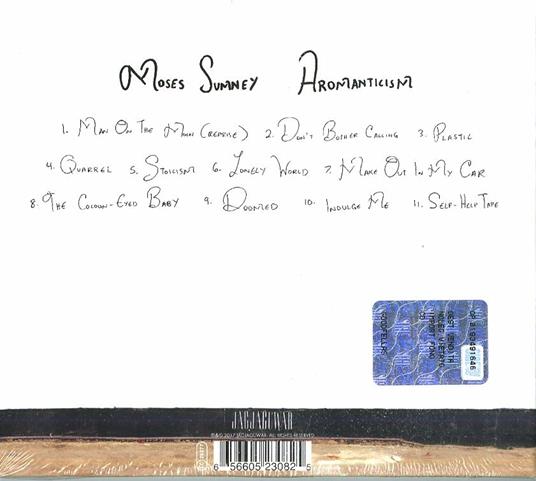 Moses Sumney Aromanticism
1. Man On The Moon (Reprise) 2. Don't Bother Calling 3. Plastic
4. Quarrel 5. Stoicism 6. Lonely World 7. Make Out In My Car
8. The Cocoon-Eyed Baby 9. Doomed 10. Indulge Me 11. Self-Help Tape
JAGJAGUWAR
2017 JAGJAGUWAR. ALL RIGHTS RESERVED
6 56605 23082 5